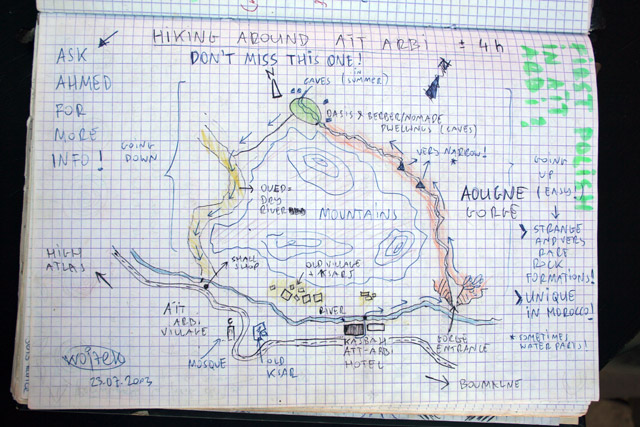 HIKING AROUND AÏT ARBI ± 4h
DON'T MISS THIS ONE!
ASK
AHMED
FOR
MORE
INFO!
FIRST POLISH
IN AÏT
ARBI!
N
CAVES (IN
SUMMER)
OASIS & BERBER/NOMADE
DWELLINGS (CAVES)
VERY NARROW!
*
GOING
DOWN
GOING
UP
(EASY!)
OUED=
DRY
RIVER
MOUNTAINS
AOUGNE
GORGE
STRANGE
AND VERY
RARE
ROCK
FORMATIONS!
UNIQUE
IN MOROCCO!
* SOMETIMES
WATER PARTS!
HIGH
ATLAS
SMALL
SHOP
OLD VILLAGE
+ KSARS
AÏT
ARBI
VILLAGE
RIVER
MOSQUE
OLD
KSAR
KASBAH
AIT-ARBI
HOTEL
GORGE
ENTRANCE
BOUMALNE
WOJTEK
23.07.2003